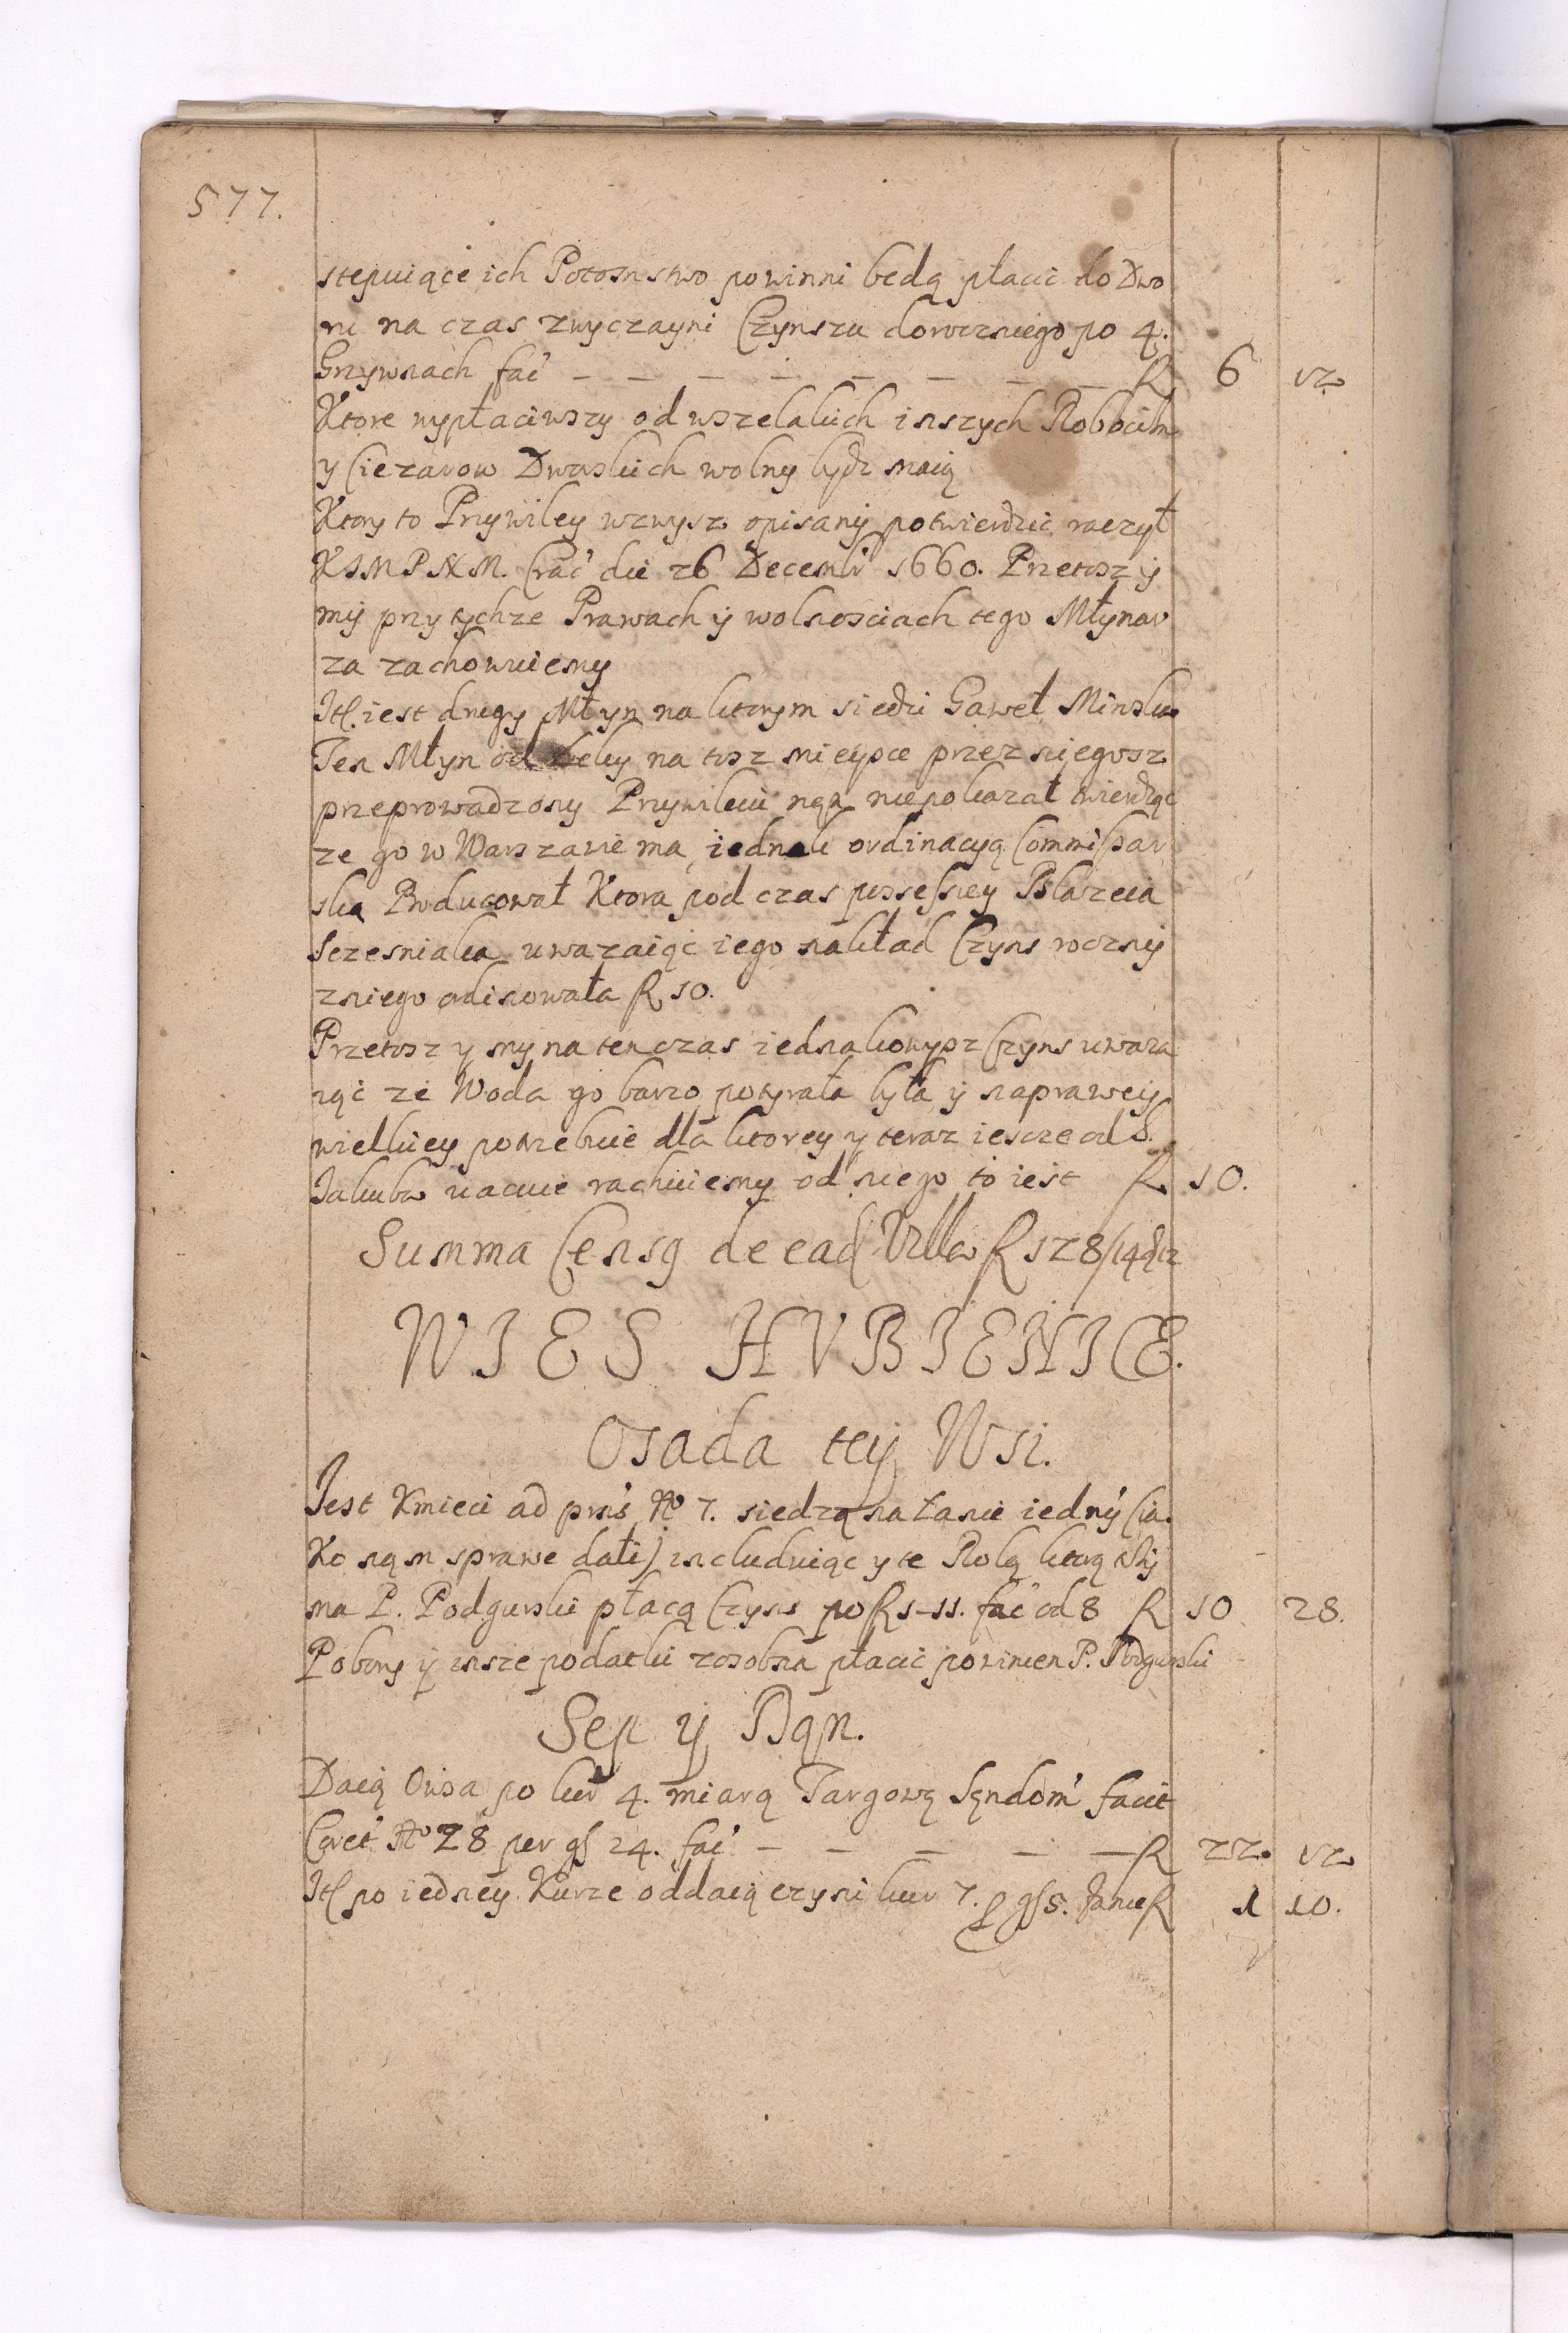 577.
stepuiące ich Potomstwo powinni bedą płacic do Dwo
ru na czas zwyczayni Czynszu dorocznego po 4.
Grzywnach fac̃ — — — — — — — — R 6 12
Ktore wypłaciwszy od wszelakich inszych Robocizn
y Ciezarow Dworskich wolny bydz maią
Ktory to Przywiley wzwysz opisany potwierdzic raczył
KJMPNM. Crac̃ die 26 Decembr̃ 1660. Przetosz y
my przy tychze Prawach y wolnosciach tego Młynar
za zachowuiemy
Itẽ iest drugy Młyn na ktorym siedzi Gaweł Minsku
Ten Młyn od rzeky na tosz mieysce przez niegosz
przeprowadzony Przywileiu nąm niepokazał twierdząc
ze go w Warszawie ma, iednak ordinacyą Commissar
ska Producował Ktora pod czas possessiey Błazeia
Szczesniaka uwazaiąc iego nakład Czyns roczny
zniego ordinowała R 10.
Przetosz y my na ten czas iednakowysz Czyns uwaza
iąc ze Woda go barzo potyrała była y naprawey
wielkiey potrzebuie dla ktorey y teraz iescze od S.
Jakuba vacuie rachuiemy od niego to iest R 10.
Summa Censg de ead Villa R 128/14 12
WIES HVBIENICE.
Osada tey Wsi.
Jest Kmieci ad prñs No 7. siedzą na Łanie iedny (ia
Ko nąm sprawe dali) includuiąc y te Rolą ktorą tży
ma P. Podgurski płacą Czyns po R 1-11. fac̃ od 8 R 10 28.
Pobory y insze podatki zosobna płacic powinien P. Podgurski
Sep y Dąn.
Daią Owsa po kor 4. miarą Targową Sęndom̃ facit
Coret̃ No 28 per gſ 24. fac̃ — — — — — R 22. 12
Itẽ po iedney Kurze oddaią czyni kur 7. p gſ 5. Janie R 1 10.